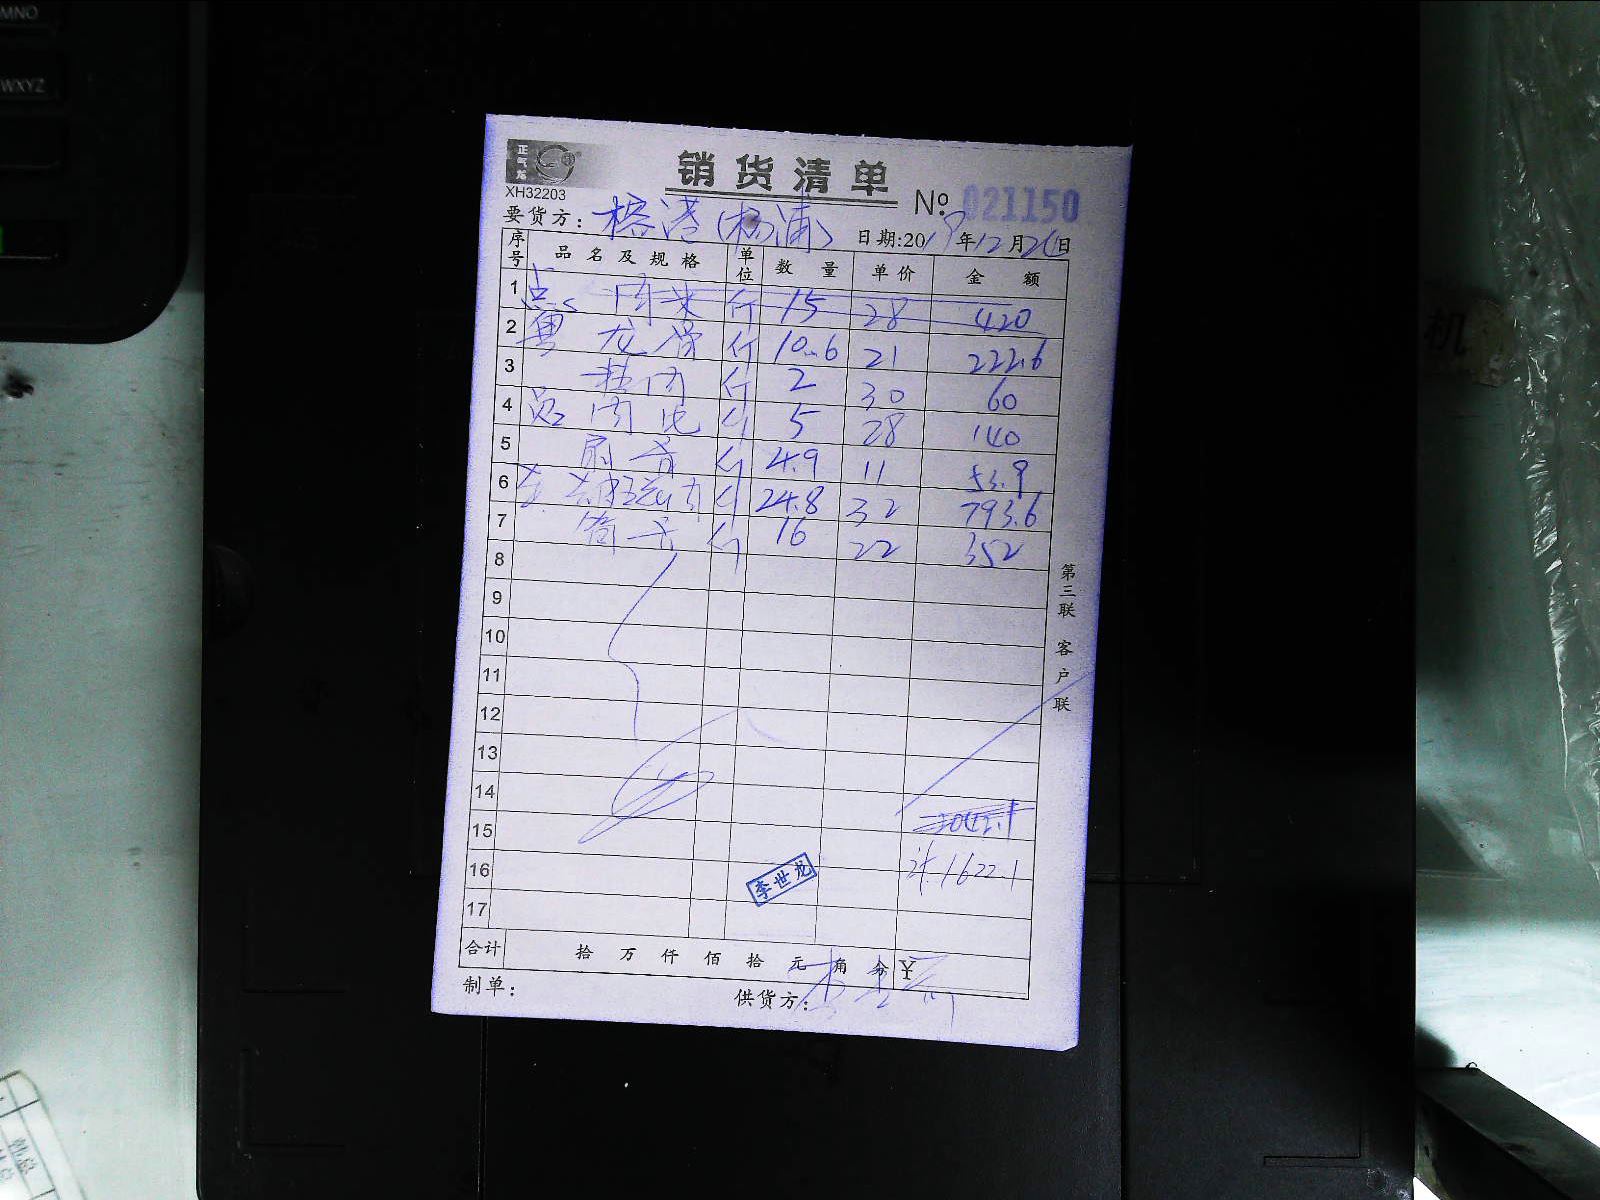 MNO
WXYZ
正气龙
XH32203
销货清单
№ 021150
要货方: 榕港(杨浦)
日期:2019年12月26日
序号 品名及规格 单位 数量 单价 金额
1 斤 15 28 420
2 粤 龙骨 斤 10.6 21 222.6
3 斤 2 30 60
4 斤 5 28 140
5 扇骨 斤 4.9 11 53.9
6 斤 24.8 32 793.6
7 筒骨 斤 16 22 352
8
9
10
11
12
13
14
15 2042.1
16 计.1622.1
17
李世龙
合计 拾 万 仟 佰 拾 元 角 分 ¥
制单: 供货方:
第三联 客户联
机